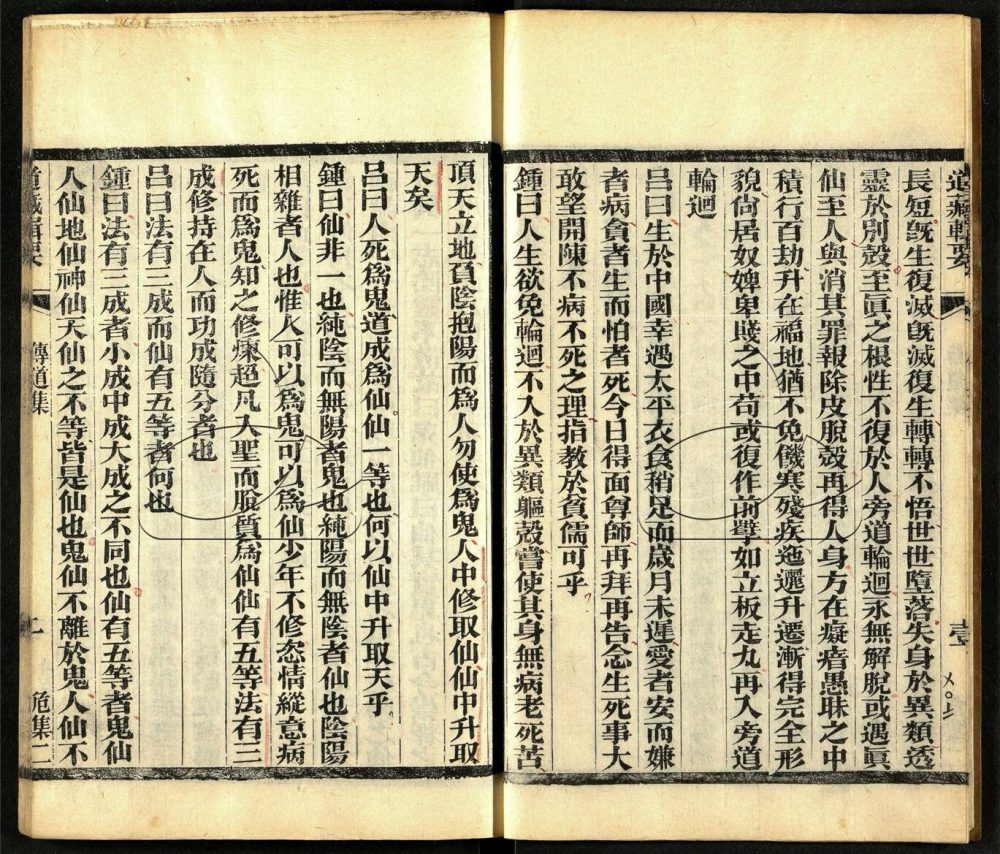 道藏輯要
長短既生復滅既滅復生轉轉不悟世世墮落失身於異類透
靈於別殼至眞之根性不復於人旁道輪迴永無解脫或遇眞
仙至人與消其罪報除皮脫殼再得人身方在癡瘖愚昧之中
積行百劫升在福地猶不免饑寒殘疾迤邐升遷漸得完全形
貌尙居奴婢卑賤之中苟或復作前孽如立板走丸再入旁道
輪迴
呂曰生於中國幸遇太平衣食稍足而歲月未遲愛者安而嫌
者病貪者生而怕者死今日得面尊師再拜再告念生死事大
敢望開陳不病不死之理指教於貧儒可乎
鍾曰人生欲免輪迴不入於異類軀殼嘗使其身無病老死苦
頂天立地負陰抱陽而爲人勿使爲鬼人中修取仙仙中升取
天矣
呂曰人死爲鬼道成爲仙仙一等也何以仙中升取天乎
鍾曰仙非一也純陰而無陽者鬼也純陽而無陰者仙也陰陽
相雜者人也惟人可以爲鬼可以爲仙少年不修恣情縱意病
死而爲鬼知之修煉超凡入聖而脫質爲仙仙有五等法有三
成修持在人而功成隨分者也
呂曰法有三成而仙有五等者何也
鍾曰法有三成者小成中成大成之不同也仙有五等者鬼仙
人仙地仙神仙天仙之不等皆是仙也鬼仙不離於鬼人仙不
道藏輯要 傳道集 危集二